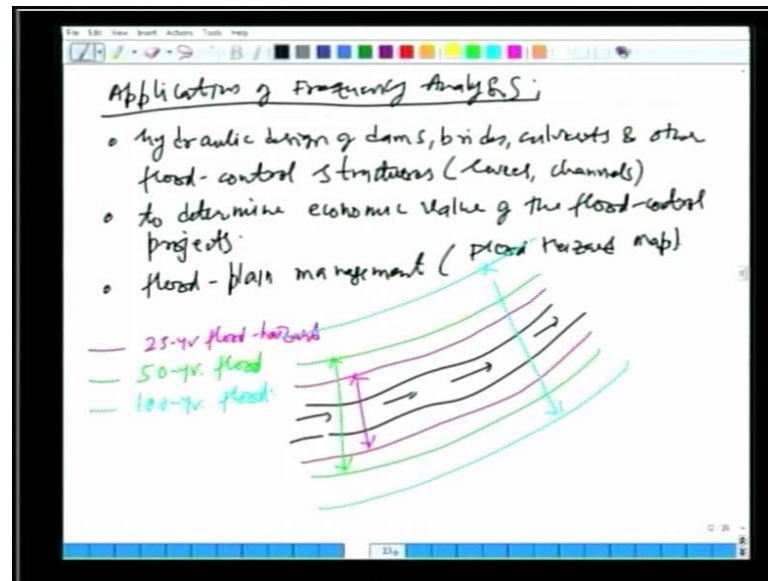 File Edit View Insert Actions Tools Help
Application of Frequency Analysis:
• hydraulic design of dams, brides, culverts & other
flood-control structures (levees, channels)
• to determine economic value of the flood-control
projects.
• flood-plain management (flood hazard map)
25-yr flood-hazard
50-yr. flood
100-yr. flood.